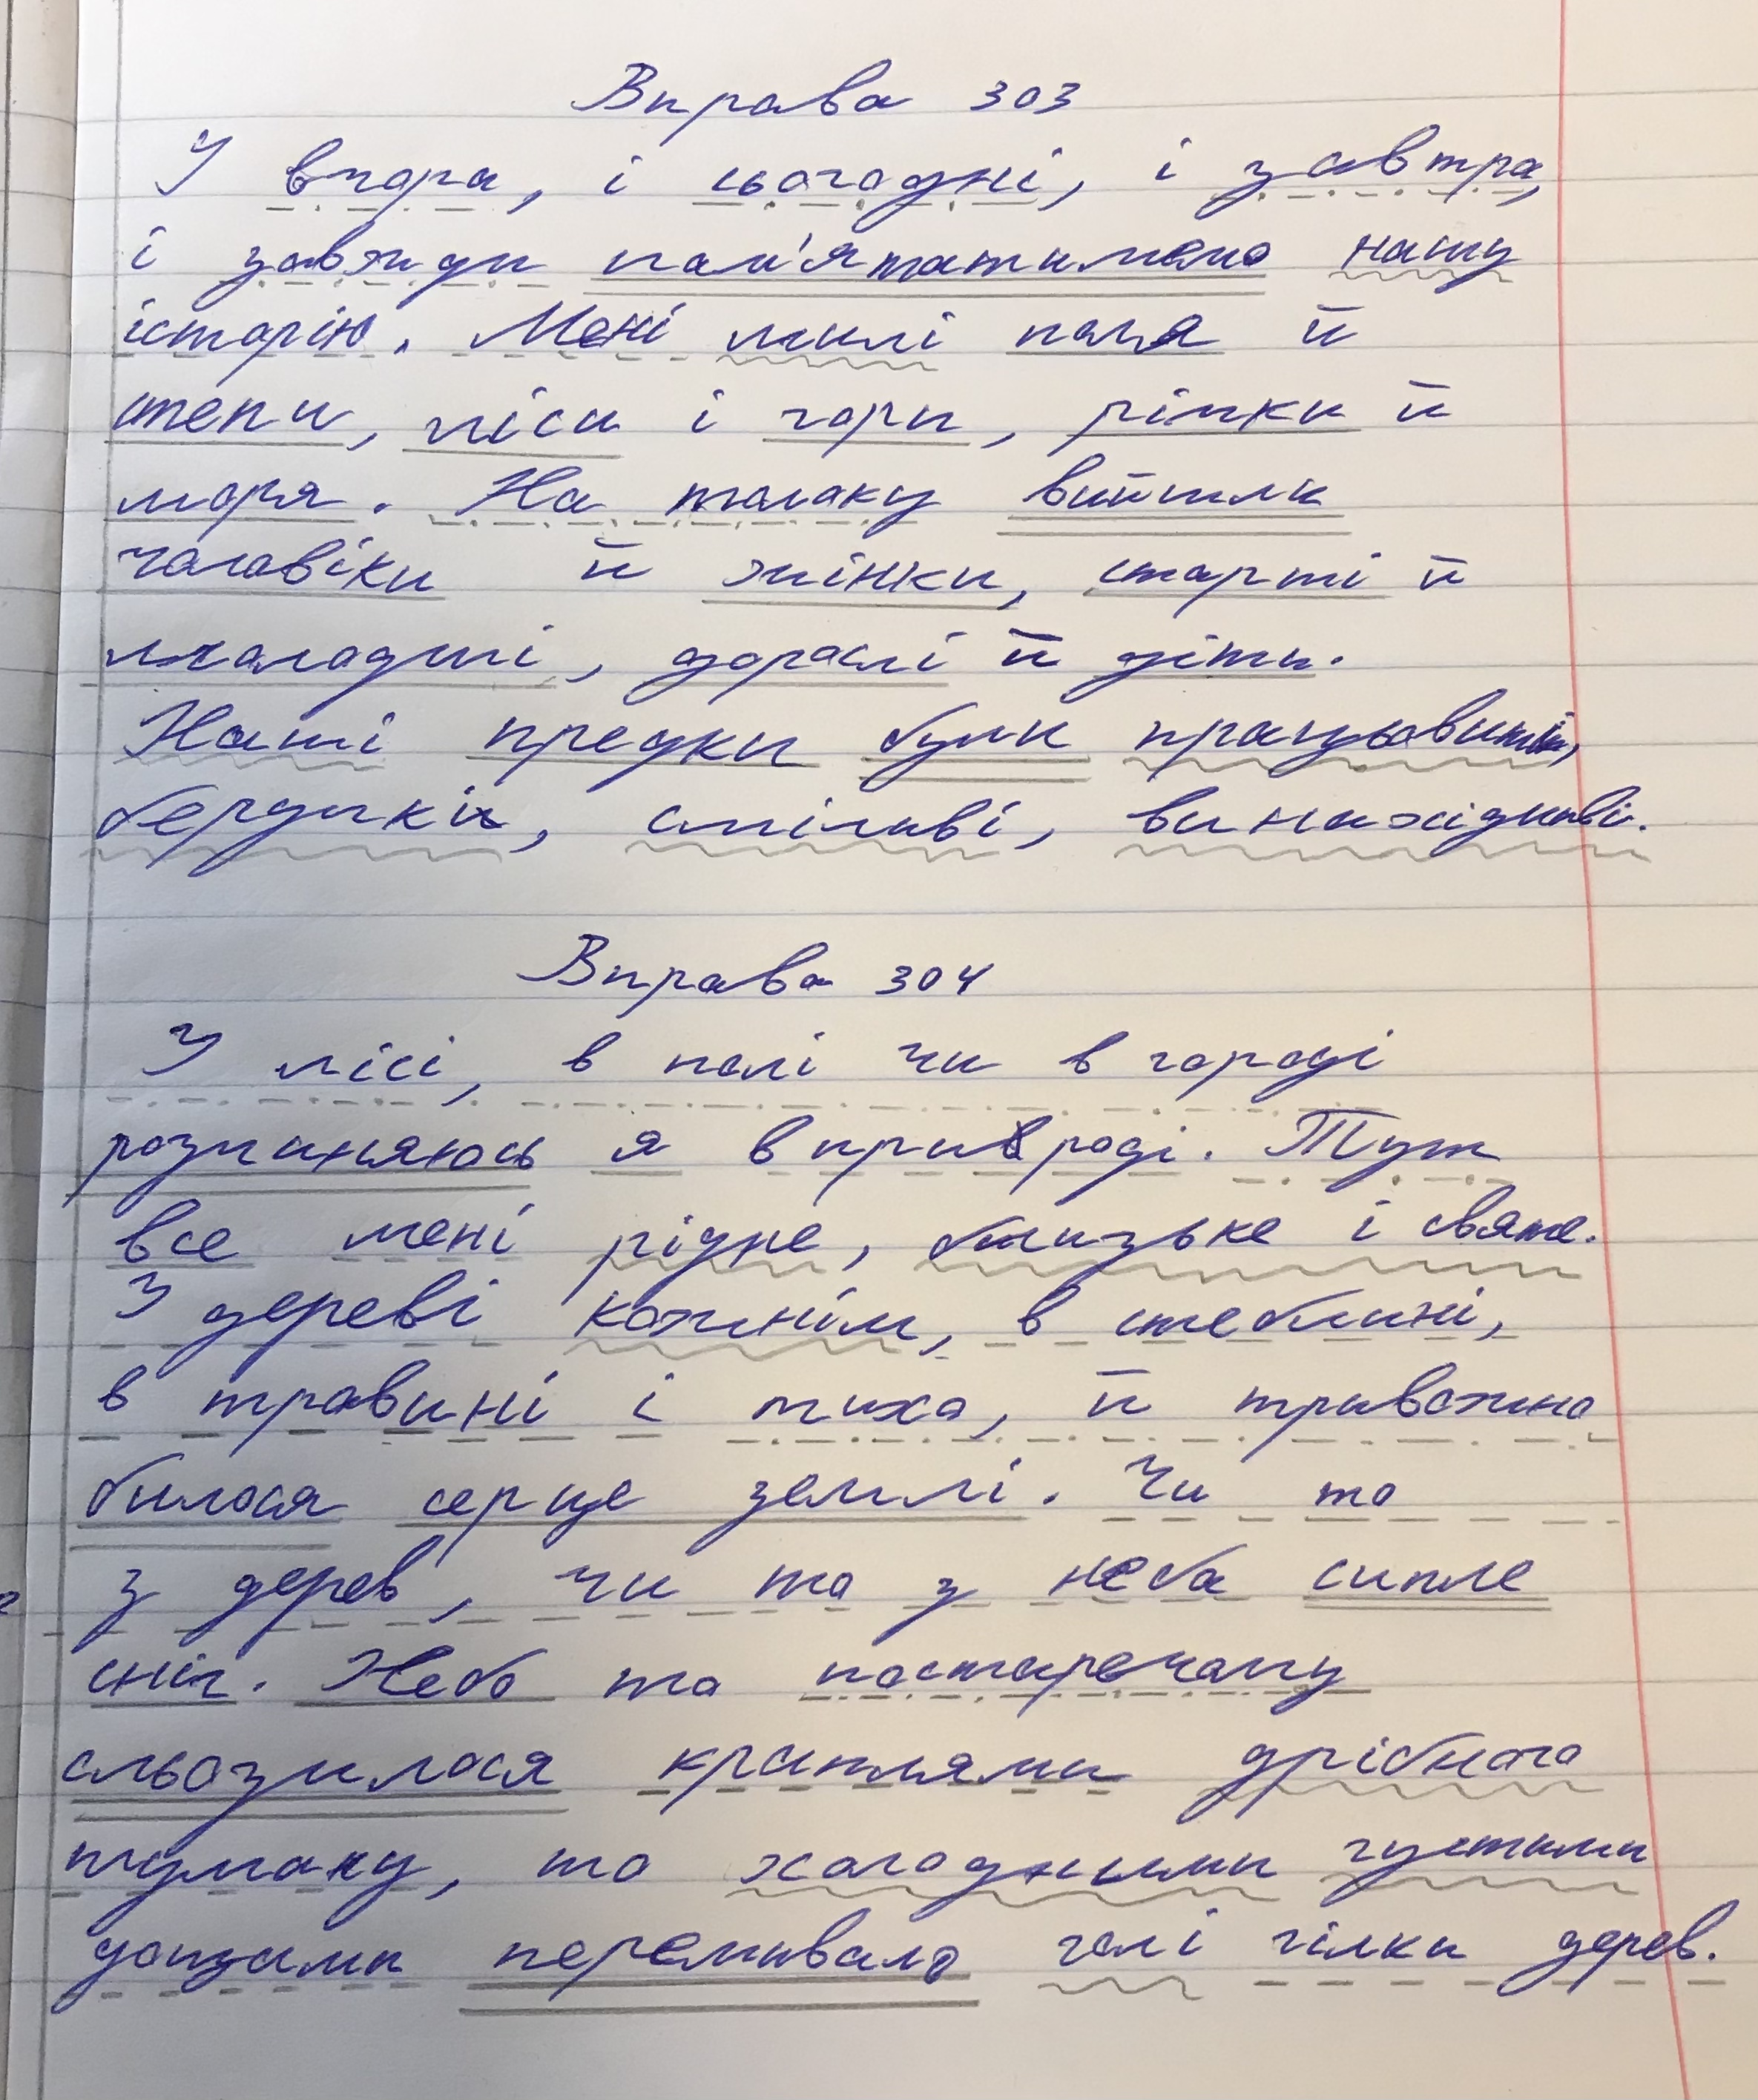 Вправа 303
І вчора, і сьогодні, і завтра,
і завжди пам'ятатимемо нашу
історію. Мені милі поля й
степи, ліси і гори, річки й
моря. На толоку вийшли
чоловіки й жінки, старші й
молодші, дорослі й діти.
Наші предки були працьовиті,
бердикі, сміливі, винахідливі.
Вправа 304
У лісі, в полі чи в городі
розчиняюсь я в природі. Тут
все мені рідне, близьке і святе.
У дереві кожнім, в стеблині,
в травині і тихо, й тривожно
билося серце землі. Чи то
з дерев, чи то з неба сипле
сніг. Небо то постаречому
сльозилося краплями дрібного
туману, то холодними густими
дощами перемивало голі гілки дерев.